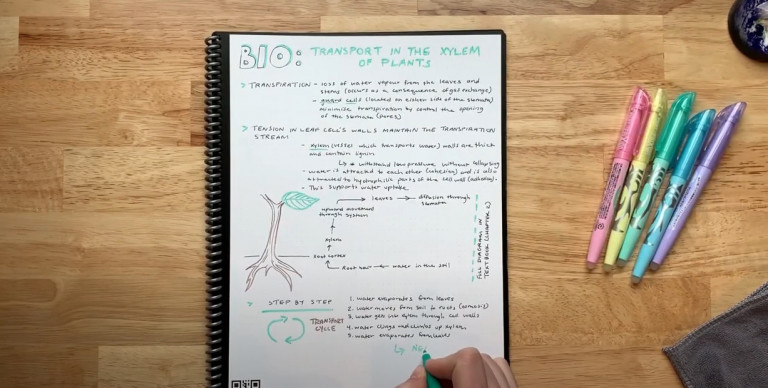 BIO: TRANSPORT IN THE XYLEM
OF PLANTS
> TRANSPIRATION - loss of water vapour from the leaves and
stems (occurs as a consequence of gas exchange)
- guard cells (located on either side of the stomata)
minimise transpiration by control the opening
of the stomata (pores)
> TENSION IN LEAF CELL'S WALLS MAINTAIN THE TRANSPIRATION
STREAM
- xylem (vessel which transports water) walls are thick
and contain lignin
↳ withstand low pressure without collapsing
- water is attracted to each other (cohesion) and is also
attracted to hydrophilic parts of the cell wall (adhesion).
- This supports water uptake.
leaves → diffusion through
stomata
upward movement
through system
xylem
root cortex
Root hair ← water in the soil
FULL DIAGRAM IN
TEXTBOOK (CHAPTER
> STEP BY STEP
TRANSPORT
CYCLE
1. water evaporates from leaves
2. water moves from soil to roots (osmosis)
3. water gets into xylem through cell walls
4. water clings and climbs up xylem
5. water evaporates from leaves